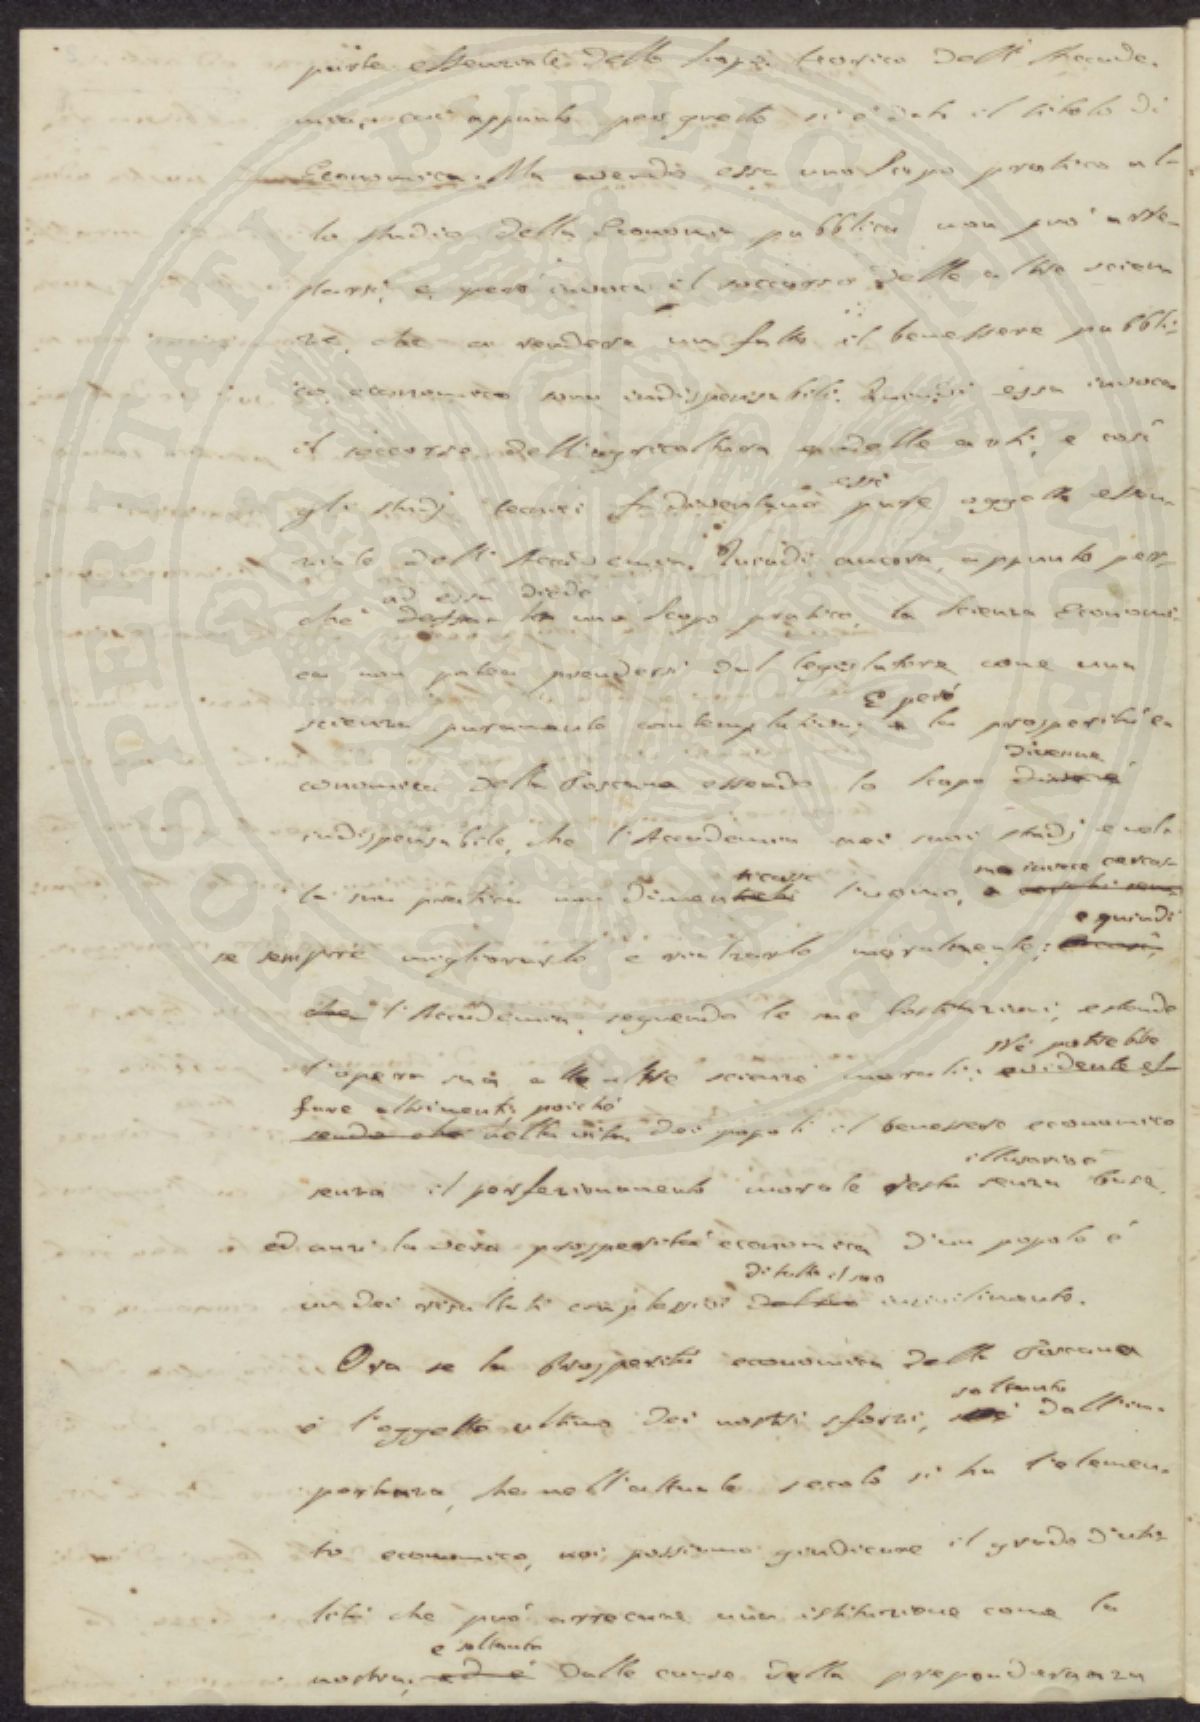 parte essenziale dello scopo teorico dell'Accade-
mia, a cui appunto per questo si è dato il titolo di
Economica. Ma avendo essa uno scopo pratico al-
lo studio della Economia pubblica non può arre-
starsi, e però invoca il soccorso delle altre scien
ze, che a rendere un fatto il benessere pubbli-
co economico sono indispensabili. Quindi essa invoca
il soccorso dell'agricoltura e delle arti, e così
gli studj tecnici diventano essi pure oggetto essen-
ziale dell'Accademia. Quindi ancora, appunto per-
ad essa diede
chè dessa ha uno scopo pratico, la scienza Economi-
ca non potea prendersi dal legislatore come una
E però
scienza puramente contemplativa; e la prosperità e-
divenne
conomica della Toscana essendo lo scopo
indispensabile, che l'Accademia nei suoi studj e nel-
ticasse ma invece cercas-
la sua pratica non dimentichi l'uomo, e
e quindi
se sempre migliorarlo e rialzarlo moralmente;
che l'Accademia, seguendo le sue Costituzioni, estende
Nè potrebbe
l'opera sua alle altre scienze morali; evidente es-
fare altrimenti, poichè
sendo che nella vita dei popoli il benessere economico
illusorio o
senza il perfezionamento morale resta senza base,
ed anzi la vera prosperità economica d'un popolo è
di tutto il suo
un dei risultati complessivi del suo incivilimento.
Ora se la Prosperità economica della Toscana
soltanto
è l'oggetto ultimo dei nostri sforzi, dall'im-
portanza, che nell'attuale secolo si ha l'elemen-
to economico, noi possiamo giudicare il grado d'uti-
lità che può arrecare una istituzione come la
e soltanto
nostra; ed è dalle cause della preponderanza
HOSPERITATI PUBLICAE AUGENDAE